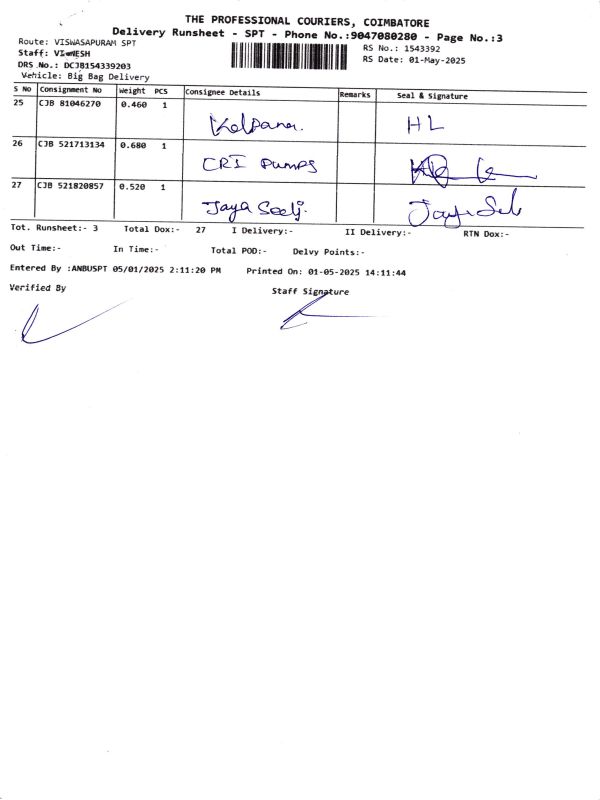 THE PROFESSIONAL COURIERS, COIMBATORE
Delivery Runsheet - SPT - Phone No.:9047080280 - Page No.:3
Route: VISWASAPURAM SPT
RS No.: 1543392
Staff: VIGNESH
RS Date: 01-May-2025
DRS No.: DCJB154339203
Vehicle: Big Bag Delivery
S No Consignment No Weight PCS Consignee Details Remarks Seal & Signature
25 CJB 81046270 0.460 1
Kalpana. HL
26 CJB 521713134 0.680 1
CRI Pumps
27 CJB 521820857 0.520 1
Jaya
Tot. Runsheet:- 3 Total Dox:- 27 I Delivery:- II Delivery:- RTN Dox:-
Out Time:- In Time:- Total POD:- Delvy Points:-
Entered By :ANBUSPT 05/01/2025 2:11:20 PM Printed On: 01-05-2025 14:11:44
Verified By Staff Signature